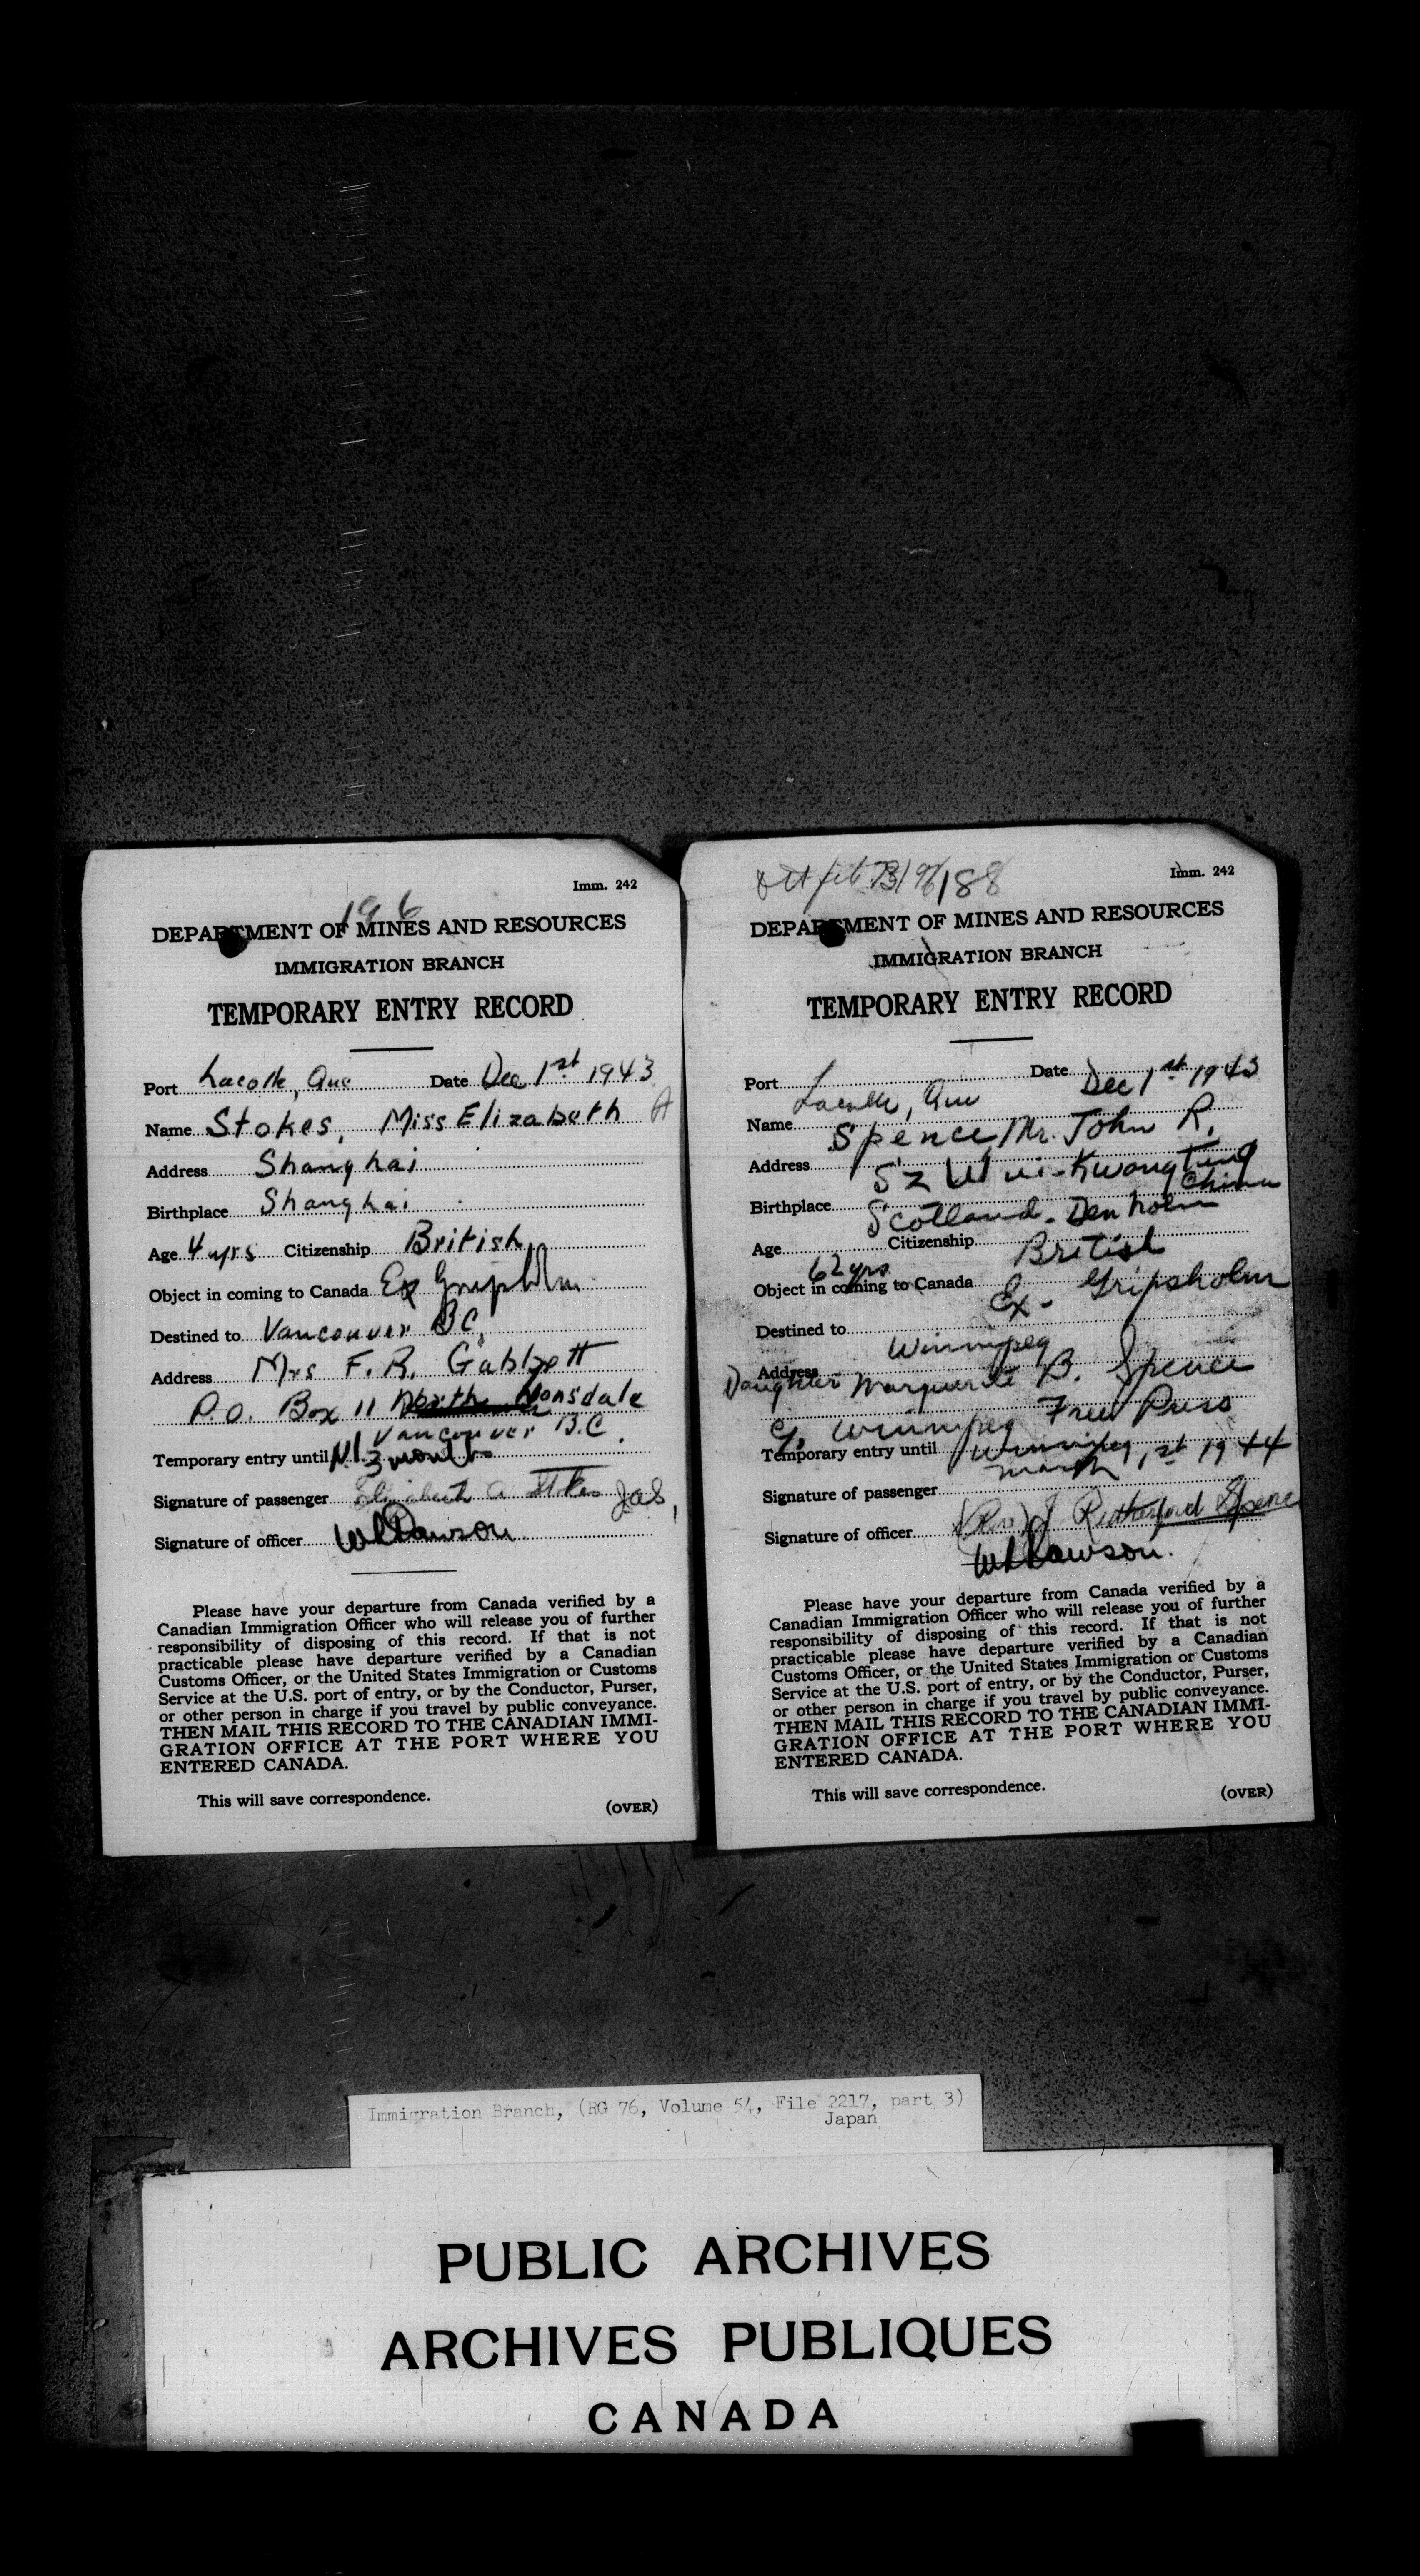 Imm. 242
196
DEPARTMENT OF MINES AND RESOURCES
IMMIGRATION BRANCH
TEMPORARY ENTRY RECORD
Port Lacolle, Que Date Dec 1st 1943
Name Stokes, Miss Elizabeth A
Address Shanghai
Birthplace Shanghai
Age 4 yrs Citizenship British
Object in coming to Canada Ex Gripsholm
Destined to Vancouver BC.
Address Mrs F. R. Gabbett
P.O. Box 11 North Lonsdale
Vancouver B.C.
Temporary entry until 3 months
Signature of passenger Elizabeth A Stokes
Signature of officer
Please have your departure from Canada verified by a
Canadian Immigration Officer who will release you of further
responsibility of disposing of this record. If that is not
practicable please have departure verified by a Canadian
Customs Officer, or the United States Immigration or Customs
Service at the U.S. port of entry, or by the Conductor, Purser,
or other person in charge if you travel by public conveyance.
THEN MAIL THIS RECORD TO THE CANADIAN IMMI-
GRATION OFFICE AT THE PORT WHERE YOU
ENTERED CANADA.
This will save correspondence.
(OVER)
Imm. 242
188
DEPARTMENT OF MINES AND RESOURCES
IMMIGRATION BRANCH
TEMPORARY ENTRY RECORD
Port Lacolle, Que Date Dec 1st 1943
Name Spence, Mr. John R.
Address Sz Wui-Kwong Tung
China
Birthplace Scotland. Denholm
Age 62 yrs Citizenship British
Object in coming to Canada Ex- Gripsholm
Destined to Winnipeg
Address
Daughter Marguerite B. Spence
Winnipeg Free Press
Winnipeg
Temporary entry until March 1st 1944
Signature of passenger (Rev) J Rutherford Spence
Signature of officer
Please have your departure from Canada verified by a
Canadian Immigration Officer who will release you of further
responsibility of disposing of this record. If that is not
practicable please have departure verified by a Canadian
Customs Officer, or the United States Immigration or Customs
Service at the U.S. port of entry, or by the Conductor, Purser,
or other person in charge if you travel by public conveyance.
THEN MAIL THIS RECORD TO THE CANADIAN IMMI-
GRATION OFFICE AT THE PORT WHERE YOU
ENTERED CANADA.
This will save correspondence.
(OVER)
Immigration Branch, (RG 76, Volume 54, File 2217, part 3)
Japan
PUBLIC ARCHIVES
ARCHIVES PUBLIQUES
CANADA